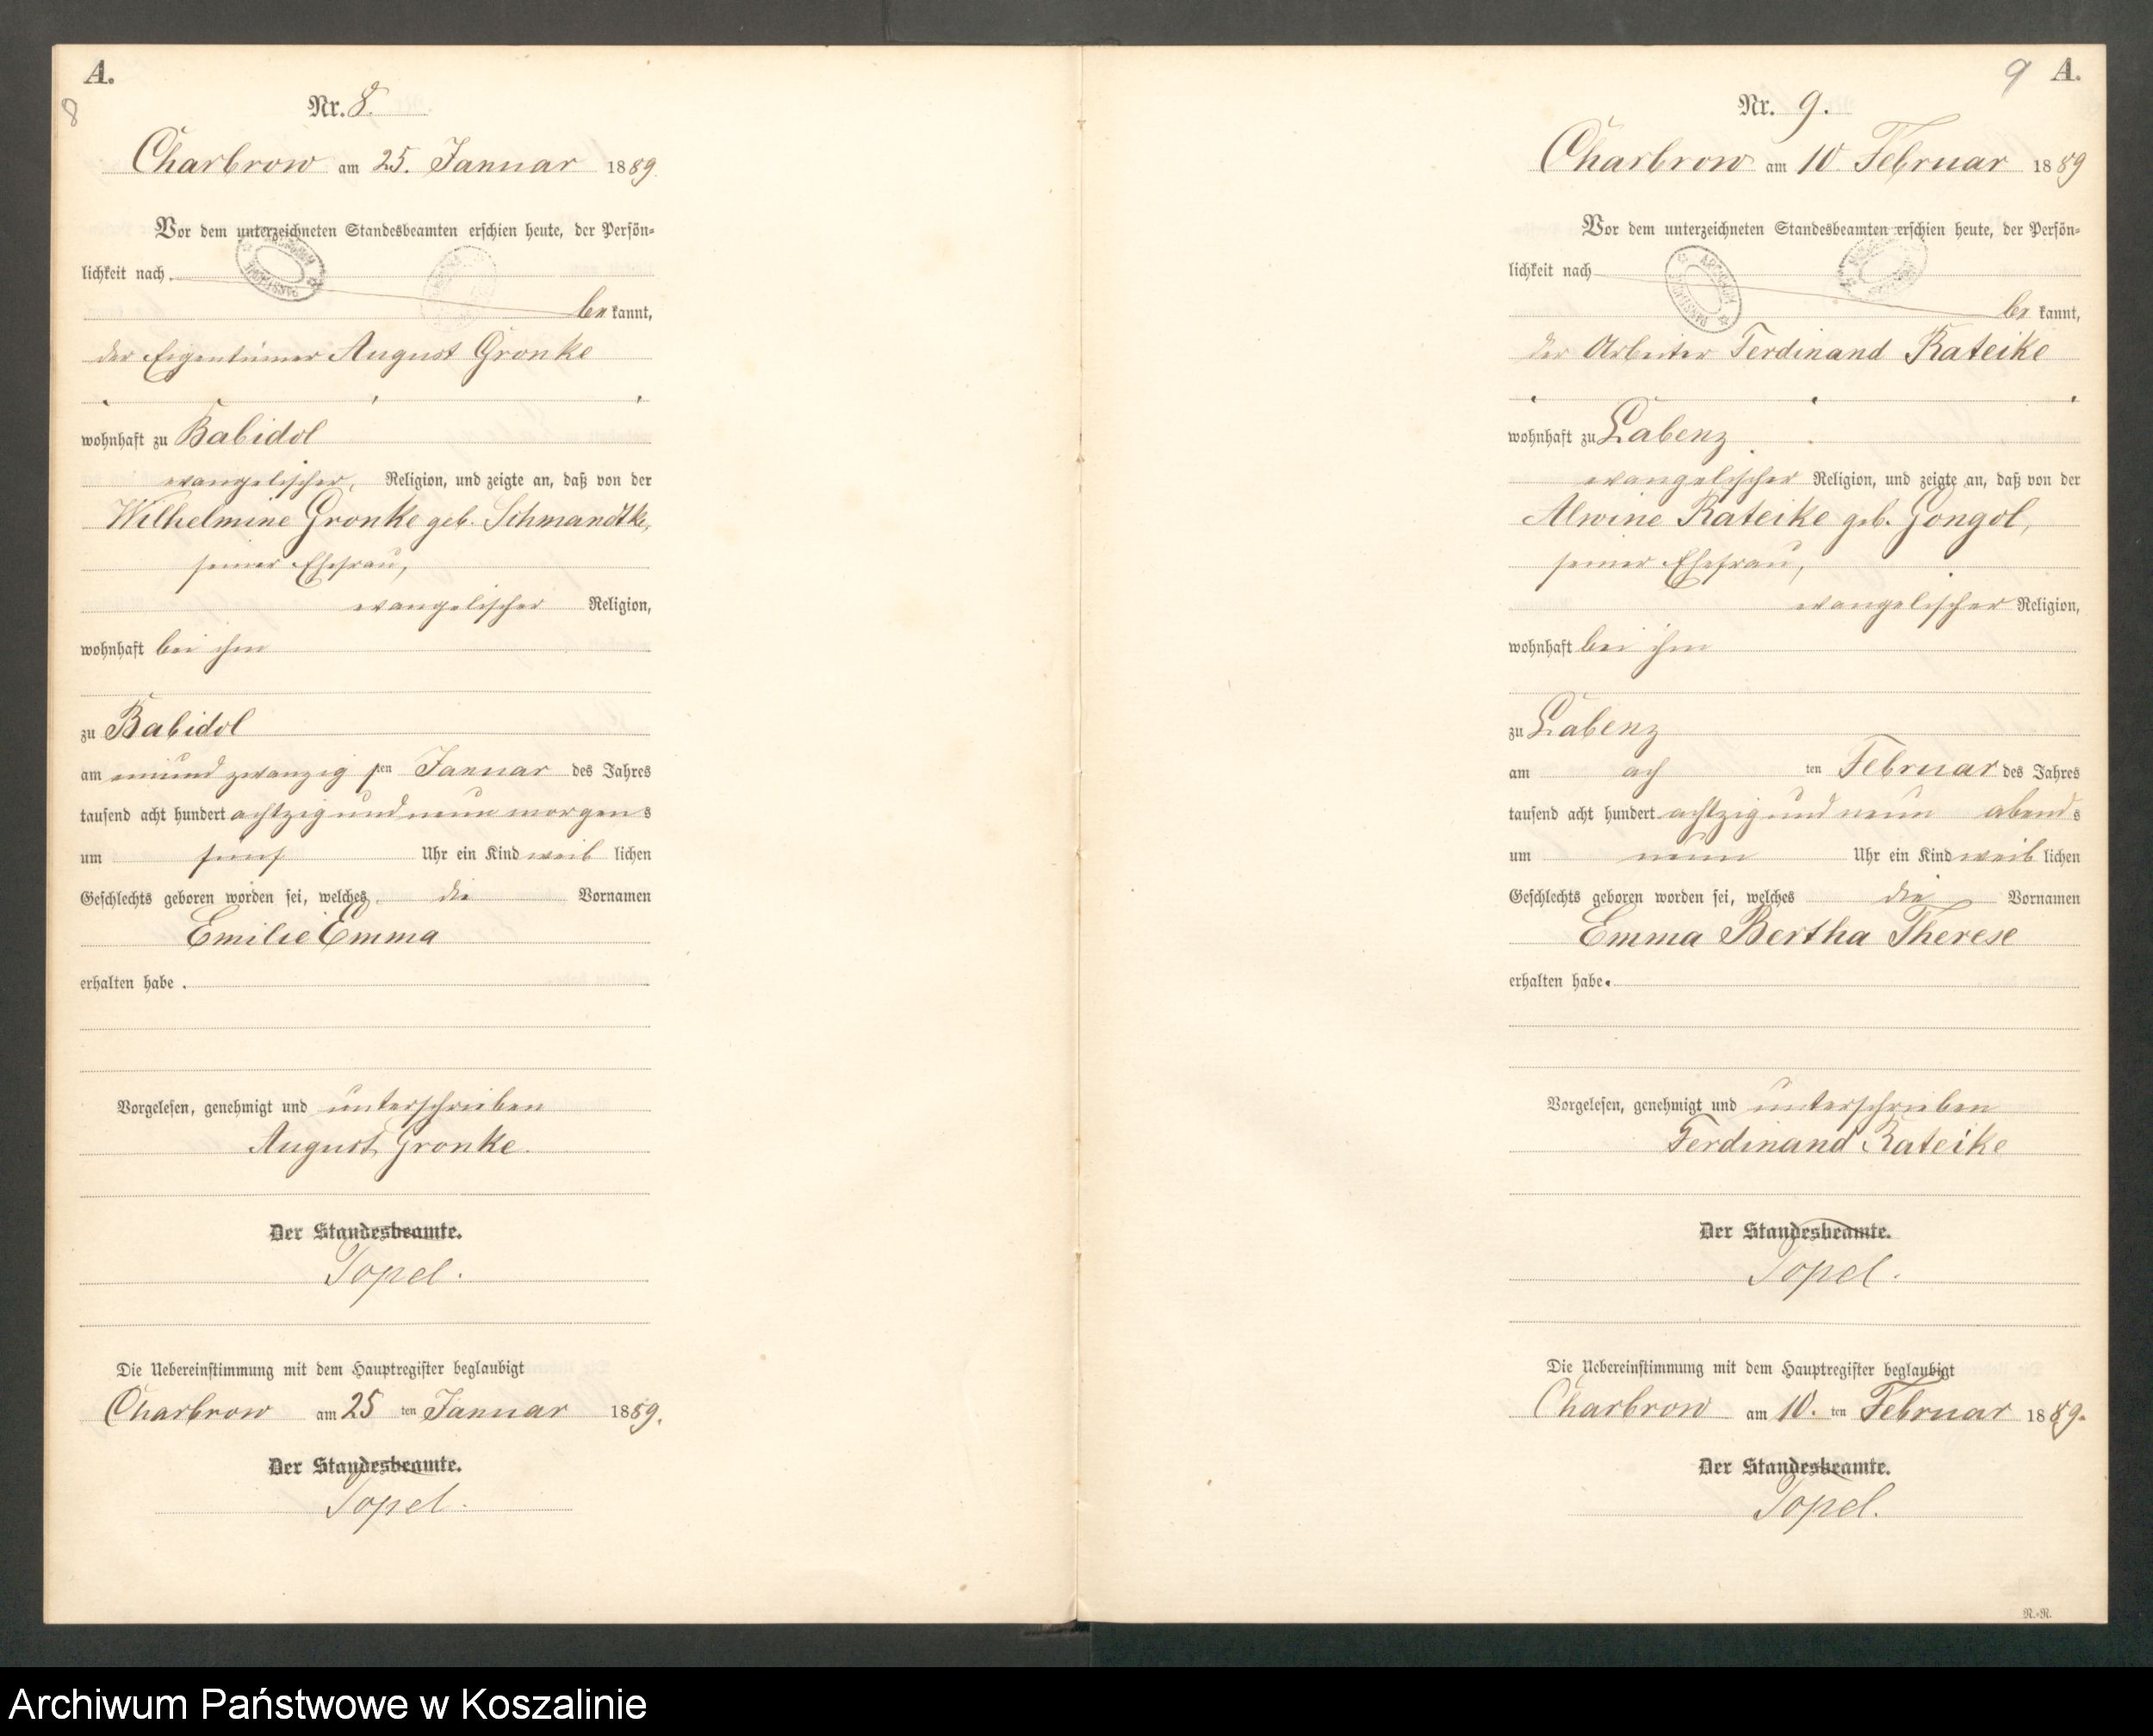 A.
8
Nr. 8.
Charbrow am 25. Januar 1889
Vor dem unterzeichneten Standesbeamten erschien heute, der Persön=
lichkeit nach
be kannt,
der Eigentümer August Gronke
wohnhaft zu Babidol
evangelischer Religion, und zeigte an, daß von der
Wilhelmine Gronke geb. Schmandtke,
seiner Ehefrau,
evangelischer Religion,
wohnhaft bei ihm
zu Babidol
am einund zwanzig sten Januar des Jahres
tausend acht hundert achtzig und neun morgens
um fünf Uhr ein Kind weib lichen
Geschlechts geboren worden sei, welches die Vornamen
Emilie Emma
erhalten habe.
Vorgelesen, genehmigt und unterschrieben
August Gronke.
Der Standesbeamte.
Topel.
Die Uebereinstimmung mit dem Hauptregister beglaubigt
Charbrow am 25 ten Januar 1889.
Der Standesbeamte.
Topel.
9 A.
Nr. 9.
Charbrow am 10. Februar 1889
Vor dem unterzeichneten Standesbeamten erschien heute, der Persön=
lichkeit nach
be kannt,
der Arbeiter Ferdinand Rateike
wohnhaft zu Labenz
evangelischer Religion, und zeigte an, daß von der
Alwine Rateike geb. Gongol,
seiner Ehefrau,
evangelischer Religion,
wohnhaft bei ihm
zu Labenz
am ach ten Februar des Jahres
tausend acht hundert achtzig und neun abends
um neun Uhr ein Kind weib lichen
Geschlechts geboren worden sei, welches die Vornamen
Emma Bertha Therese
erhalten habe.
Vorgelesen, genehmigt und unterschrieben
Ferdinand Rateike
Der Standesbeamte.
Topel.
Die Uebereinstimmung mit dem Hauptregister beglaubigt
Charbrow am 10. ten Februar 1889.
Der Standesbeamte.
Topel.
R.-R.
Archiwum Państwowe w Koszalinie